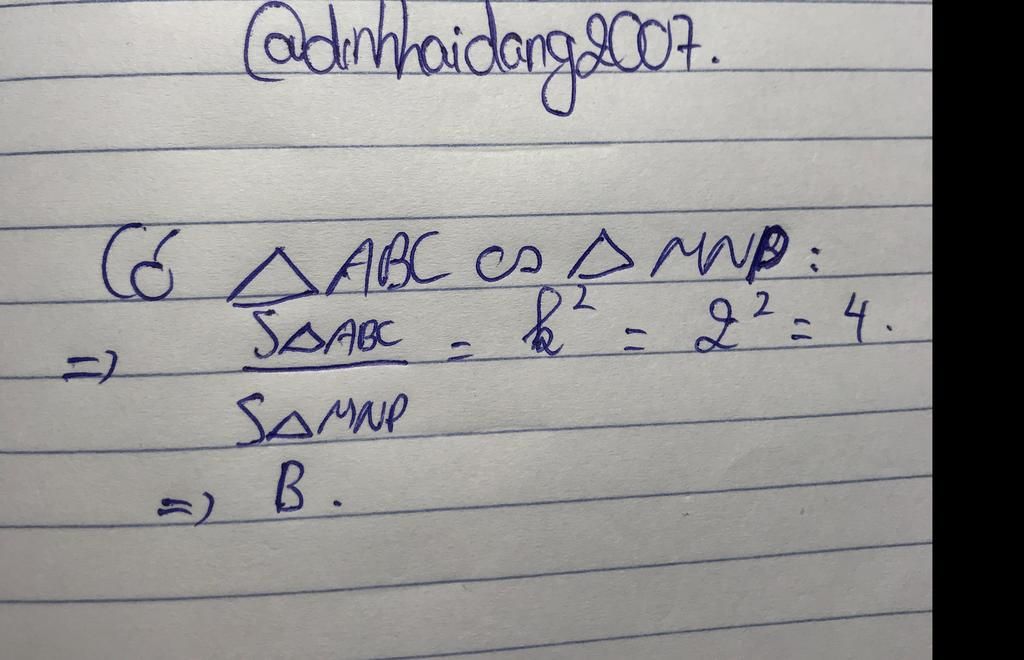 @dinhhaidang2007.
Có △ABC ∽ △MNP:
=> S△ABC / S△MNP = k² = 2² = 4.
=> B.